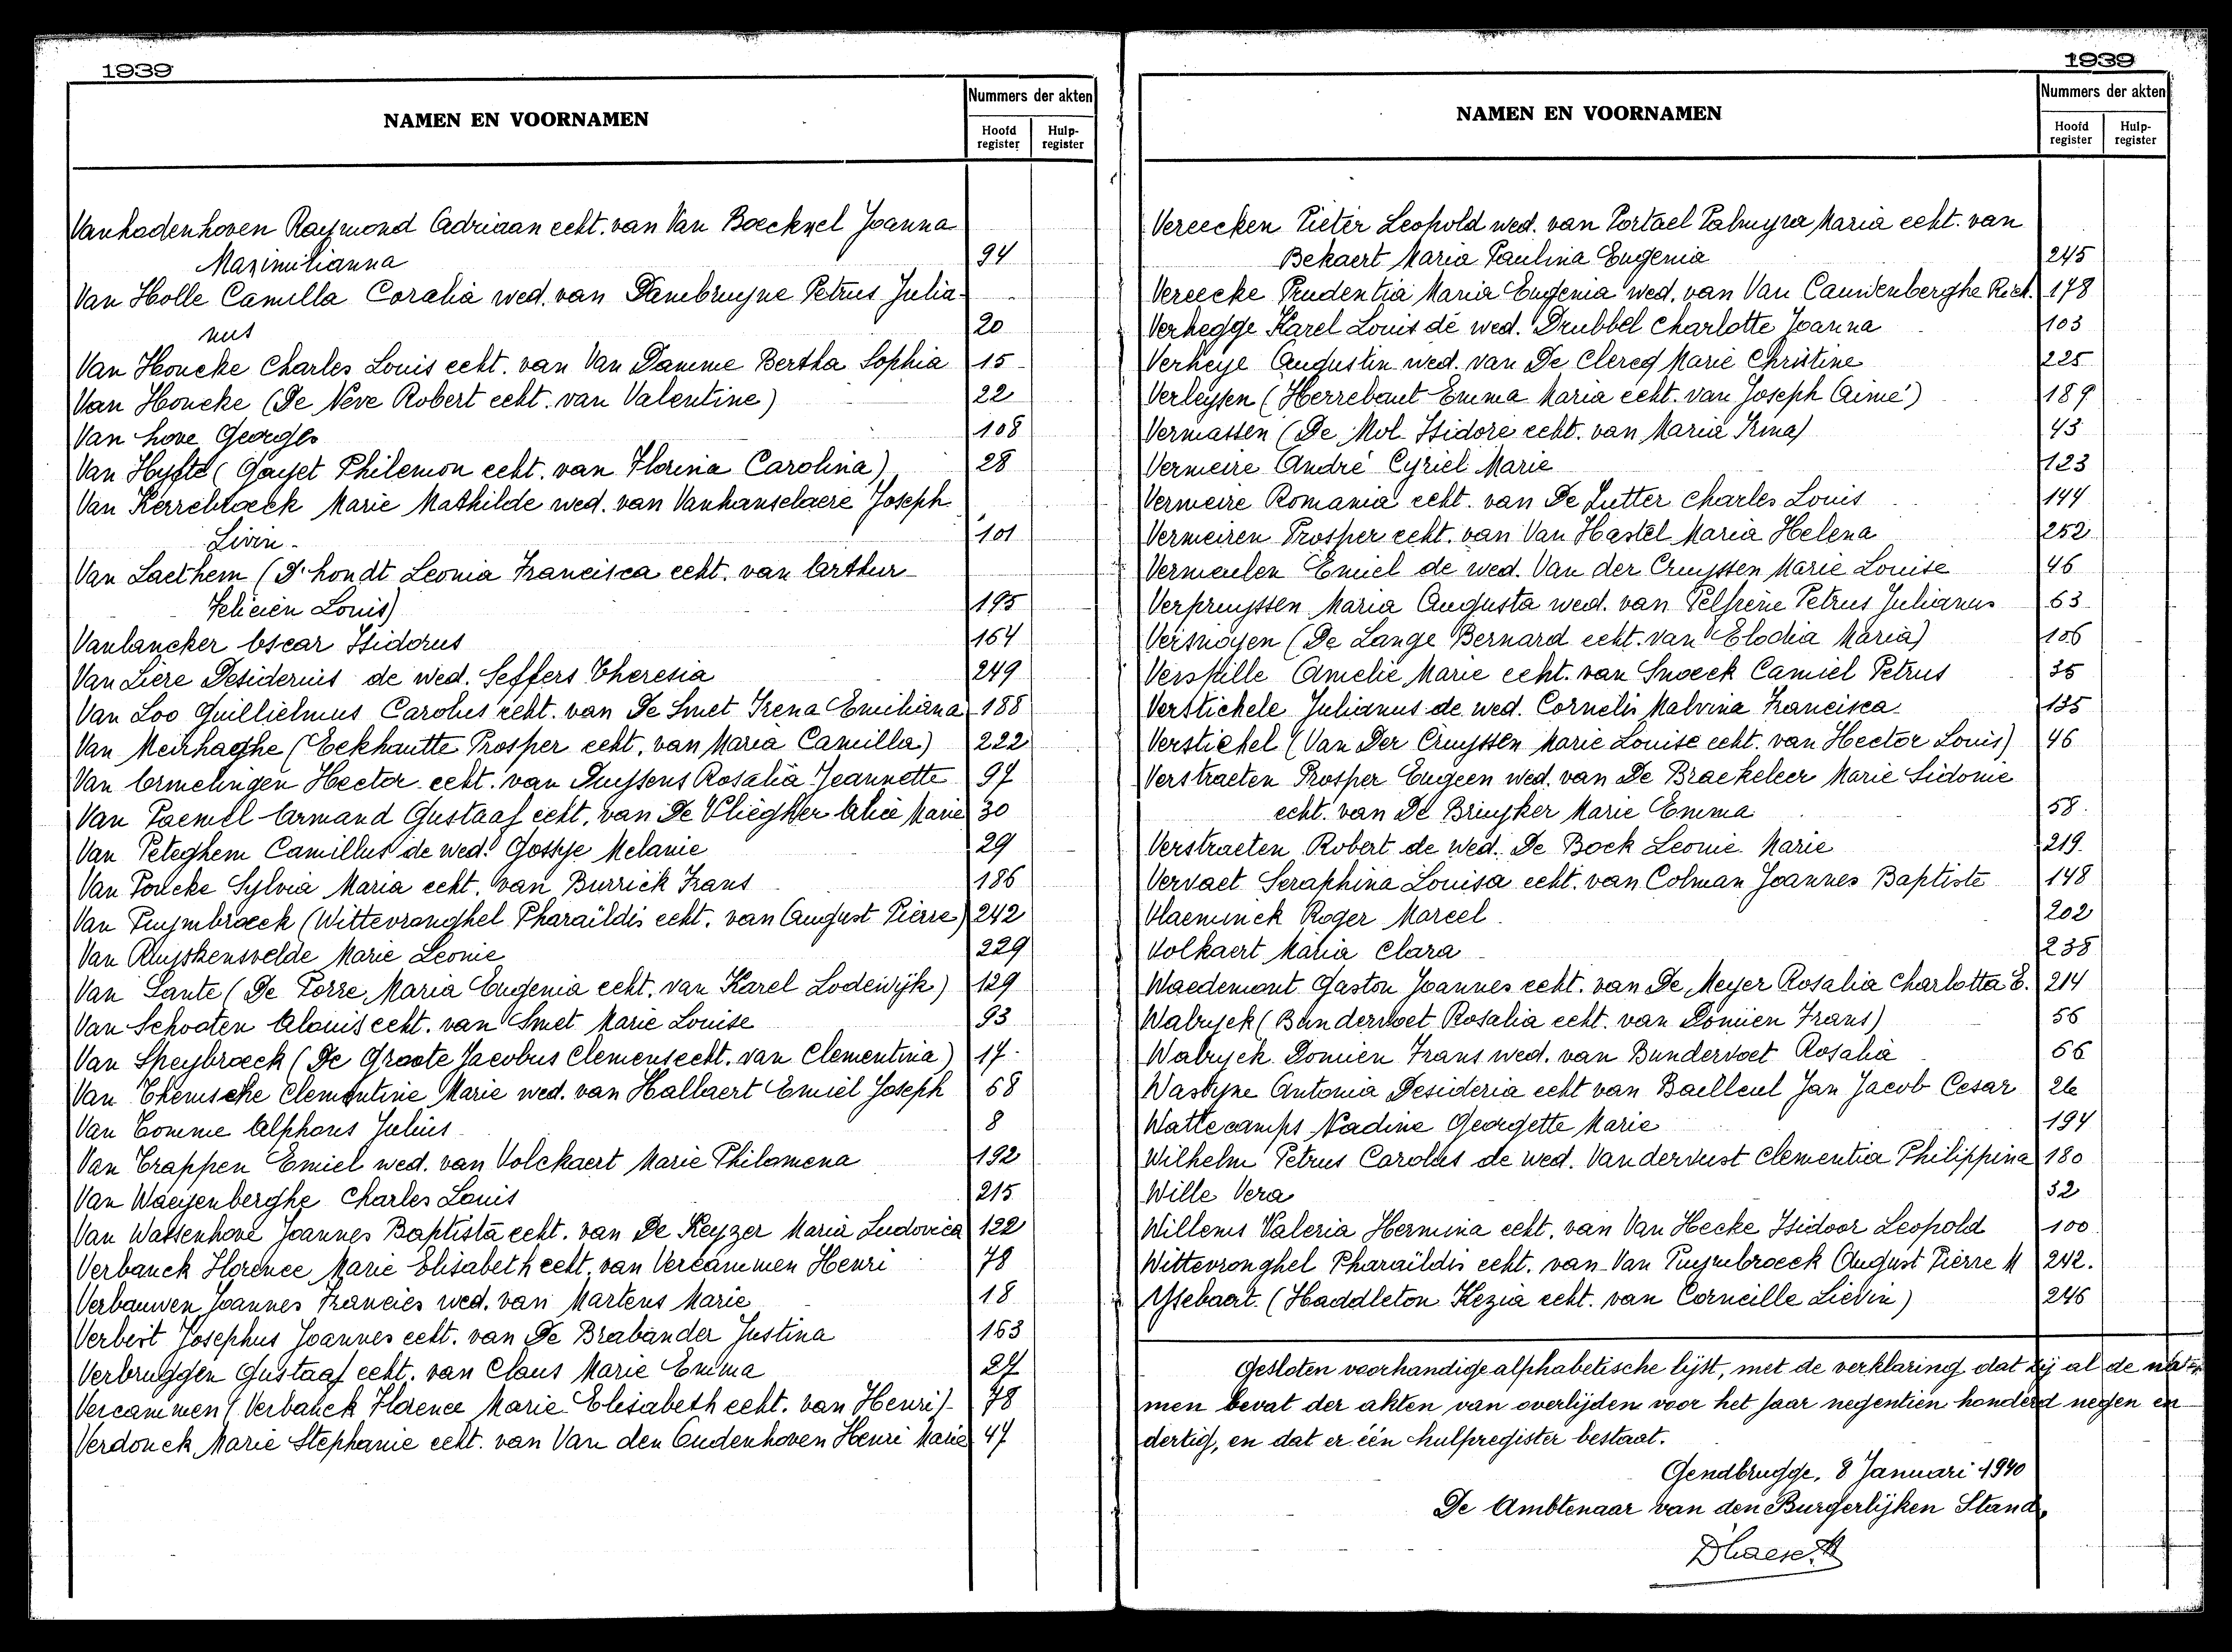 1939
NAMEN EN VOORNAMEN
Nummers der akten
Hoofd register
Hulp-register
Vanhadenhoven Raymond Adriaan echt. van Van Boeckxel Joanna
Maximilianna 94
Van Holle Camilla Coralia wed. van Dambruyne Petrus Julia-
nus 20
Van Honcke Charles Louis echt. van Van Damme Bertha Sophia 15
Van Honcke (De Neve Robert echt. van Valentine) 22
Van hove Georges 108
Van Hyfte (Gayet Philemon echt. van Florina Carolina) 28
Van Kerrebroeck Marie Mathilde wed. van Vanhanselaere Joseph
Livin. 101
Van Laethem (D'hondt Leonia Francisca echt. van Arthur
Felicien Louis) 195
Vanlancker Oscar Isidorus 164
Van Liere Desiderius de wed. Seffers Theresia 249
Van Loo Guillielmus Carolus echt. van De Smet Irena Emiliana 188
Van Meirhaeghe (Eekhautte Prosper echt. van Maria Camilla) 222
Van Ormelingen Hector echt. van Duyssens Rosalia Jeannette 97
Van Paemel Armand Gustaaf echt. van De Vliegher Alice Marie 30
Van Peteghem Camillus de wed. Gossye Melanie 29
Van Poucke Sylvia Maria echt. van Burrick Frans 186
Van Puymbroeck (Wittevronghel Pharaïldis echt. van August Pierre) 242
Van Ruyskensvelde Marie Leonie 229
Van Sante (De Porre Maria Eugenia echt. van Karel Lodewijk) 129
Van Schooten Aloüis echt. van Smet Marie Louise 93
Van Speybroeck (De Groote Jacobus Clemens echt. van Clementina) 17
Van Themsche Clementine Marie wed. van Hallaert Emiel Joseph 68
Van Tomme Alphons Julius 8
Van Trappen Emiel wed. van Volckaert Marie Philomena 192
Van Waeyenberghe Charles Louis 215
Van Wassenhove Joannes Baptista echt. van De Keyzer Maria Ludovica 122
Verbanck Florence Marie Elisabeth echt. van Vercammen Henri 78
Verbauwen Joannes Francies wed. van Martens Marie 18
Verbist Josephus Joannes echt. van De Brabander Justina 163
Verbruggen Gustaaf echt. van Claus Marie Emma 27
Vercammen (Verbanck Florence Marie Elisabeth echt. van Henri) 78
Verdonck Marie Stephanie echt. van Van den Oudenhoven Henri Marie 47
1939
NAMEN EN VOORNAMEN
Nummers der akten
Hoofd register
Hulp-register
Vereecken Pieter Leopold wed. van Portael Palmyra Maria echt. van
Bekaert Maria Paulina Eugenia 245
Vereecke Prudentia Maria Eugenia wed. van Van Cauwenberghe Rich. 178
Verhegge Karel Louis de wed. Drubbel Charlotte Joanna 103
Verheye Augustin wed. van De Clercq Marie Christine 225
Verleysen (Herrebaut Emma Maria echt. van Joseph Aimé) 189
Vermassen (De Mol Isidore echt. van Maria Irma) 43
Vermeire André Cyriel Marie 123
Vermeire Romania echt. van De Sutter Charles Louis 144
Vermeiren Prosper echt. van Van Hastel Maria Helena 252
Vermeulen Emiel de wed. Van der Cruyssen Marie Louise 46
Verpruyssen Maria Augusta wed. van Pelfrène Petrus Julianus 63
Versnoyen (De Lange Bernard echt. van Elodia Maria) 106
Verspille Amelie Marie echt. van Snoeck Camiel Petrus 35
Verstichele Julianus de wed. Cornelis Malvina Francisca 135
Verstichel (Van Der Cruyssen Marie Louise echt. van Hector Louis) 46
Verstraeten Prosper Eugeen wed. van De Braekeleer Marie Sidonie
echt. van De Bruyker Marie Emma 58
Verstraeten Robert de wed. De Bock Leonie Marie 219
Vervaet Seraphina Louisa echt. van Colman Joannes Baptiste 148
Vlaeminck Roger Marcel 202
Volkaert Maria Clara 238
Waedemont Gaston Joannes echt. van De Meyer Rosalia Charlotta E. 214
Walryck (Bundervoet Rosalia echt. van Domien Frans) 56
Walryck Domien Frans wed. van Bundervoet Rosalia 66
Wastyne Antonia Desideria echt van Bailleul Jan Jacob Cesar 26
Wattecamps Nadine Georgette Marie 194
Wilhelm Petrus Carolus de wed. Vandervust Clementia Philippina 180
Wille Vera 32
Willems Valeria Hermina echt. van Van Hecke Isidoor Leopold 100
Wittevronghel Pharaïldis echt. van Van Puymbroeck August Pierre M 242.
Ysebaert. (Haddleton Kezia echt. van Corneille Lievin) 246
Gesloten voorhandige alphabetische lijst, met de verklaring dat zij al de na-
men bevat der akten van overlijden voor het jaar negentien honderd negen en
dertig, en dat er één hulpregister bestaat.
Gendbrugge, 8 Januari 1940
De Ambtenaar van den Burgerlijken Stand,